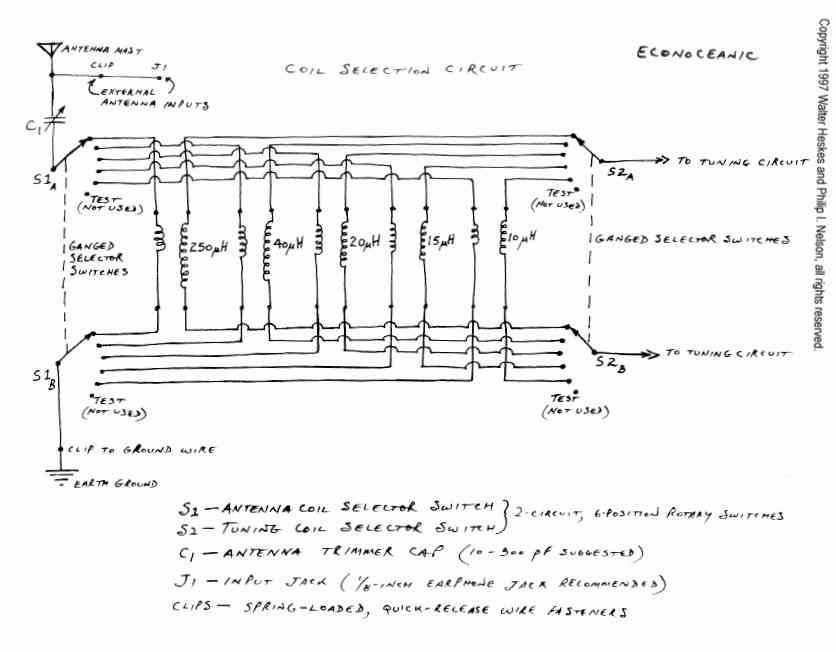 ANTENNA MAST
CLIP J1
EXTERNAL
ANTENNA INPUTS
COIL SELECTION CIRCUIT
ECONOCEANIC
C1
S1A
TEST
(NOT USED)
S2A
TO TUNING CIRCUIT
TEST
(NOT USED)
GANGED
SELECTOR
SWITCHES
250μH
40μH
20μH
15μH
10μH
GANGED SELECTOR SWITCHES
S1B
TEST
(NOT USED)
S2B
TO TUNING CIRCUIT
TEST
(NOT USED)
CLIP TO GROUND WIRE
EARTH GROUND
S1 — ANTENNA COIL SELECTOR SWITCH
S2 — TUNING COIL SELECTOR SWITCH
2-CIRCUIT, 6-POSITION ROTARY SWITCHES
C1 — ANTENNA TRIMMER CAP (10-300 pF SUGGESTED)
J1 — INPUT JACK (1/8-INCH EARPHONE JACK RECOMMENDED)
CLIPS — SPRING-LOADED, QUICK-RELEASE WIRE FASTENERS
Copyright 1997 Walter Heskes and Philip I. Nelson, all rights reserved.